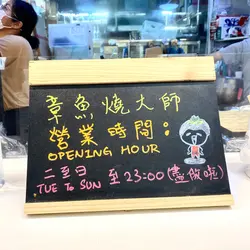 章魚燒大師
營業時間：
OPENING HOUR
二至日 至23:00(盡做啦)
TUE To SUN